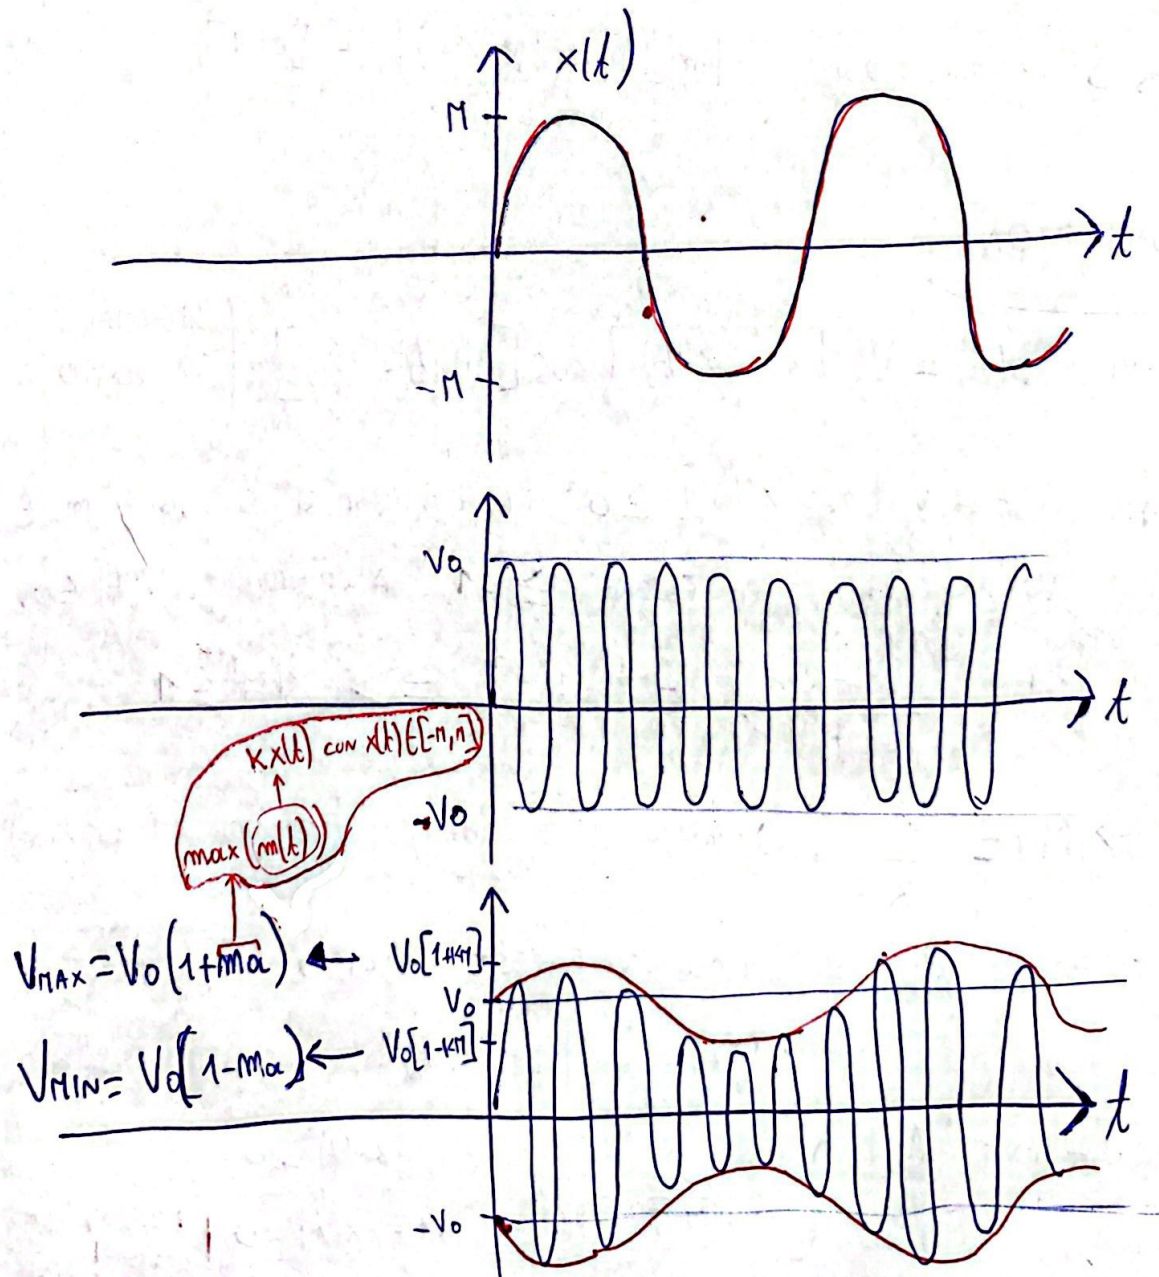 x(t)
M
t
-M
V0
t
K x(t) con x(t) ∈ [-M, M]
-V0
max (m(t))
VMAX = V0 (1 + ma) ← V0 [1+KM]
V0
VMIN = V0 [1 - ma) ← V0 [1-KM]
t
-V0